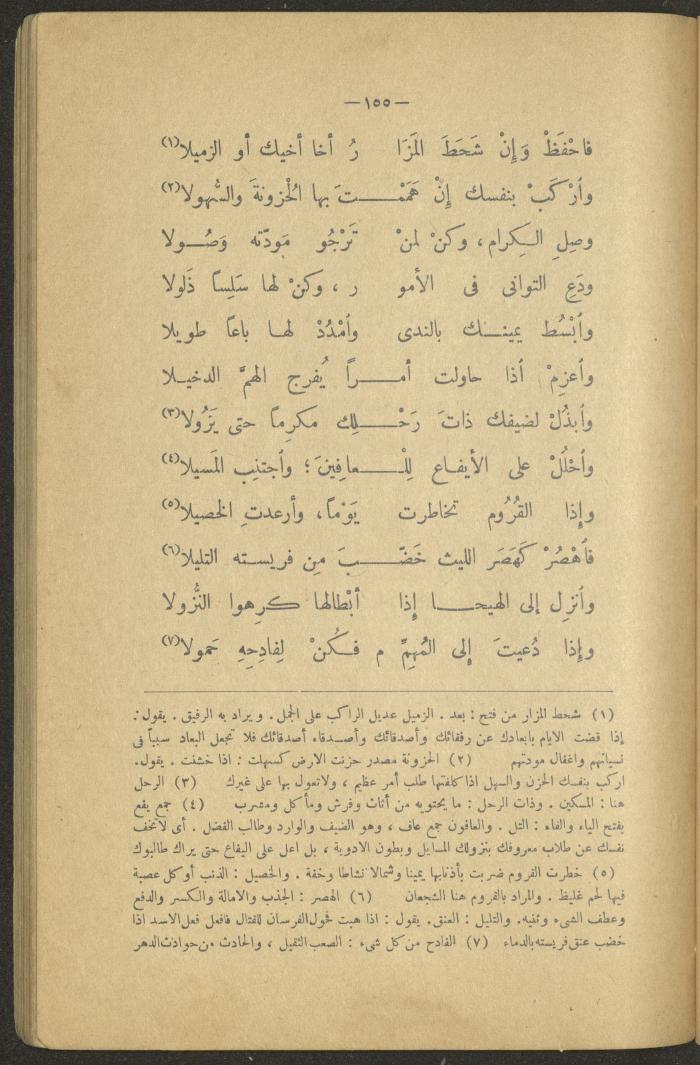 — ١٥٥ —
فاحْفَظْ وَإِنْ شَحَطَ المَزَا رُ أخا أخيك أو الزميلا(١)
وأرْكَبْ بنفسك إِنْ هَمَمْـتَ بها الْحُزونةَ والسُّهولا(٢)
وصِلِ الـكِرام، وكنْ لمنْ تَرْجُو مَودّته وَصُـولا
ودَعِ التوانى فى الأمو ر، وكنْ لها سَلِسًا ذَلولا
وأبْسُط يمينـك بالندى وأمْدُدْ لهـا باعًا طويلا
وأعزِمْ أذا حاولت أمـرًا يُفرج الهمَّ الدخيـلا
وأبذُلْ لضيفك ذاتَ رَحْـلِك مكرِمًا حتى يَزُولا(٣)
وأحْلُلْ على الأيفـاع لِلْـعافِينَ؛ وأجتنِب المَسيلا(٤)
وإذا القُرُوم تخاطرت يَوْمًا، وأرعدتِ الخصيلا(٥)
فأهْصُرْ كَهَصَر الليث خَضّـبَ مِن فريسـته التليلا(٦)
وأنزِل إلى الهيجـا إِذا أبْطالها كـرِهوا النُّزولا
وإذا دُعيتَ إلى المُهِمِّ م فـكُنْ لِفادِحِهِ حَمولا(٧)
(١) شحط المزار من فتح : بعد . الزميل عديل الراكب على الجمل . ويراد به الرفيق . يقول :
إذا قضت الايام بابعادك عن رفقائك وأصدقائك وأصـدقاء أصدقائك فلا تجعل البعاد سببا فى
نسيانهم واغفال مودتهم (٢) الحزونة مصدر حزنت الارض كسهلت : اذا خشنت . يقول .
اركب بنفسك الحزن والسهل اذا كلفتها طلب أمر عظيم ، ولا تعول بها على غيرك (٣) الرحل
هنا : المسكين . وذات الرحل : ما يحتويه من أثاث وفرش ومأكل ومشرب (٤) جمع يفع
بفتح الياء والفاء : التل . والعافون جمع عاف ، وهو الضيف والوارد وطالب الفضل . أى لا تخف
نفسك عن طلاب معروفك بنزولك المسايل وبطون الاودية ، بل اعل على اليفاع حتى يراك طالبوك
(٥) خطرت القروم ضربت بأذنابها يمينا وشمالا نشاطا وخفة . والخصيل : الذنب أو كل عصبة
فيها لحم غليظ . والمراد بالقروم هنا الشجعان (٦) الهصر : الجذب والامالة والكسر والدفع
وعطف الشىء وثنيه . والتليل : العنق . يقول : اذا هبت فحول الفرسان للقتال فافعل فعل الاسد اذا
خضب عنق فريسته بالدماء (٧) الفادح من كل شىء : الصعب الثقيل ، والحادث من حوادث الدهر